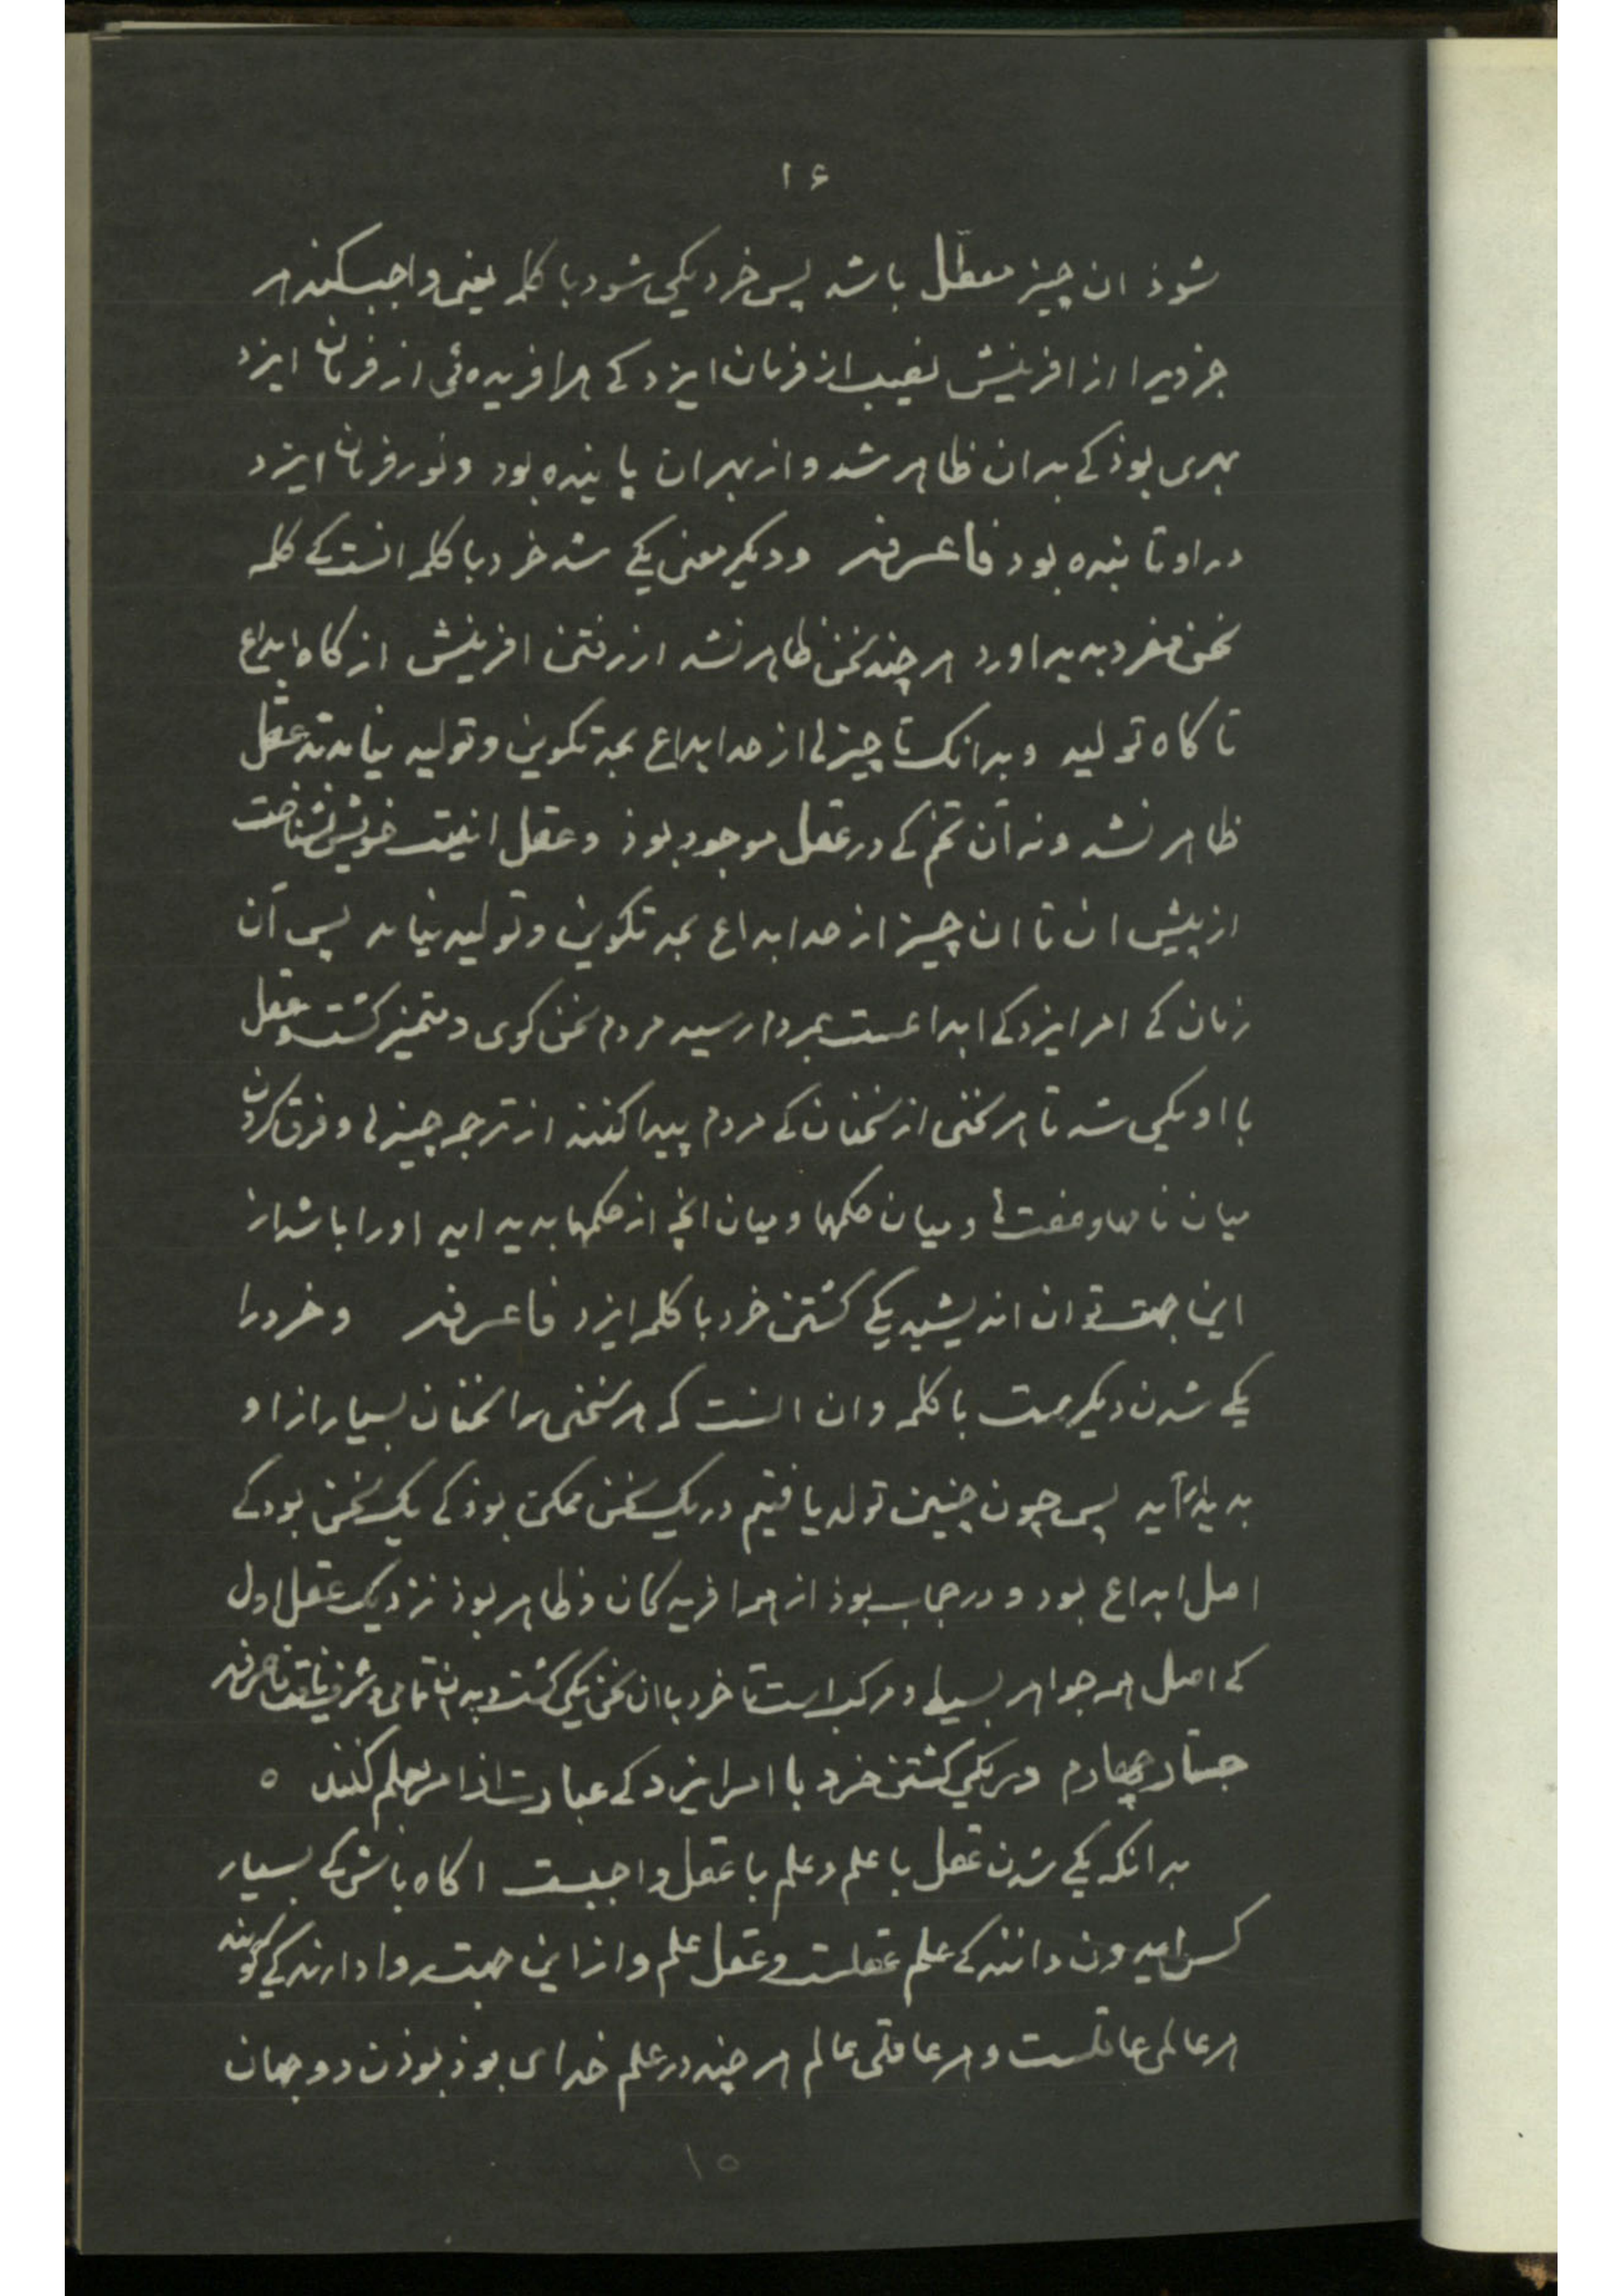 ۱۶
شوذ ان چیز معطّل باشد پس خرد یکی شود با کلمه یعنی واجب کند هر
خردیرا از افرینش نصیب از فرمان ایزد کے هر افریده ئی از فرمان ایزد
بهری بوذ کے بدان ظاهر شد و از بهر ان پاینده بود و نور فرمان ایزد
در او تابنده بود فاعرفه و دیکر معنی یکے شد خرد با کلمه انست کے کلمه
سخن مفرد بدید اورد هر چند سخن ظاهر نشد از رفتن افرینش از کاه ابداع
تا کاه تولید و بدانک تا چیزی از حد ابداع بحد تکوین و تولید نیامد نه عقل
ظاهر نشد و نه آن تخم کے در عقل موجود بوذ و عقل انیت خویش نشناخت
از پیش ان تا ان چیز از حد ابداع بحد تکوین و تولید نیامد پس آن
زمان کے امر ایزد کے ابداعست بمردم رسید مردم سخن کوی و متمیز کشت و عقل
با او یکی شد تا هر سخنی از سخنان کے مردم پیدا کنند از ترجمه چیزی و فرق کردن
میان نامها و صفت‌ها و میان حکمها و میان انچه از حکمها بدید اید او را باشد از
این جهت توان اندیشید یکے کشتن خرد با کلمه ایزد فاعرفه و خرد را
یکے شدن دیکر هست با کلمه و ان انست که هر سخنی را سخنان بسیار از او
بدیدار آید پس چون چنین تولد یافتیم در یک سخن ممکن بوذ کے یک سخن بود کے
اصل ابداع بود و در حجاب بوذ از همه افریدکان و ظاهر بوذ نزدیک عقل اول
کے اصل همه جواهر بسیط و مرکب است تا خرد با ان سخن یکی کشت و بدان تمامی و شرف یافت فاعرفه
جستار چهارم در یکی کشتن خرد با امر ایزد کے عبارت از امر بعلم کنند ه
بدانکه یکے شدن عقل با علم و علم با عقل واجبست اکاه باش کے بسیار
کس ایدون دانند کے علم عقلست و عقل علم و از این جهت روا دارند کے کویند
هر عالمی عاقلست و هر عاقلی عالم هر چند در علم خدای بوذ بوذن دو جهان
۱۵